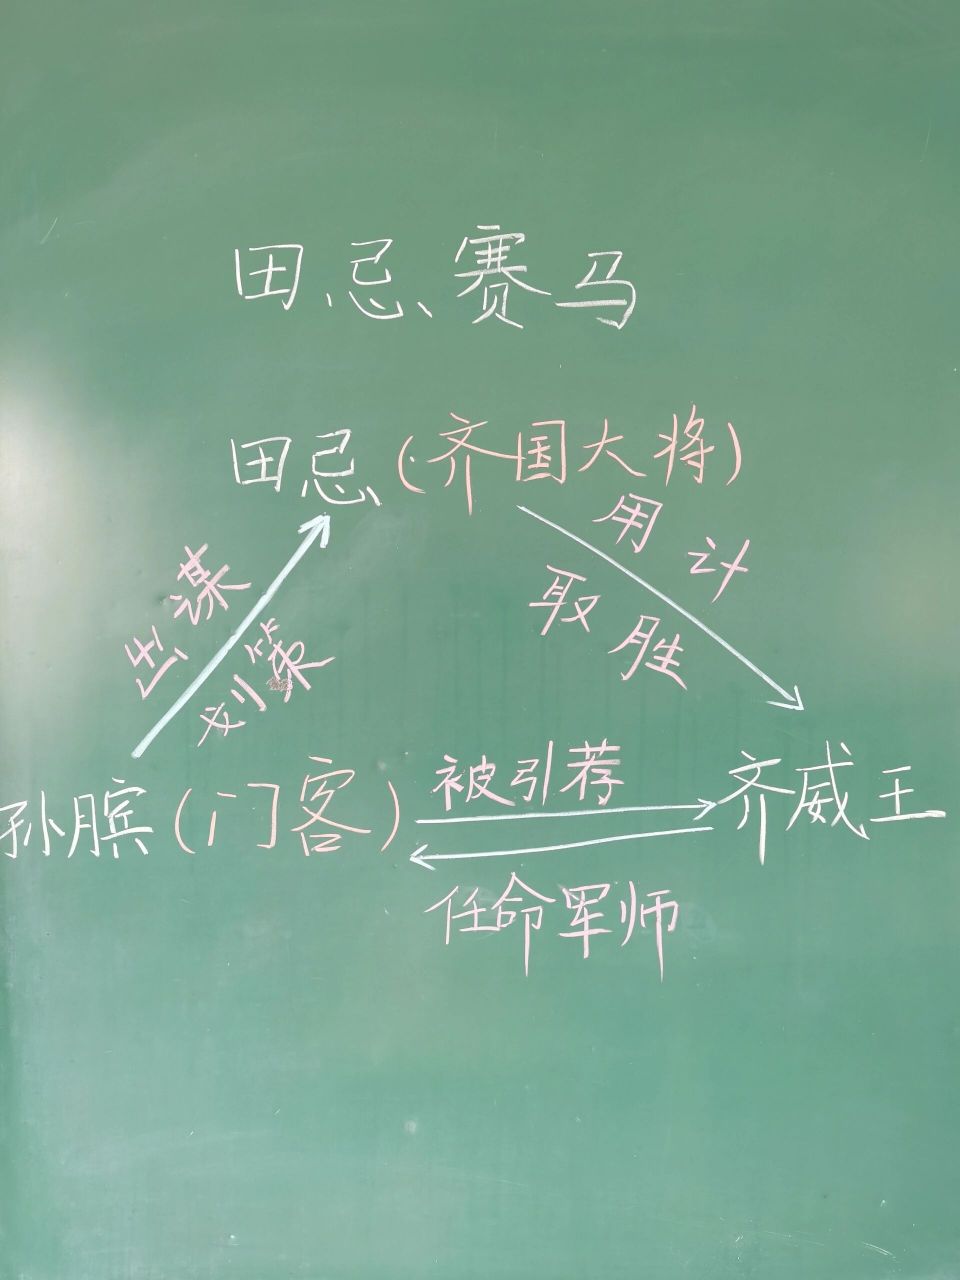 田忌赛马
田忌(齐国大将)
用计
取胜
出谋
划策
被引荐
孙膑(门客)
齐威王
任命军师